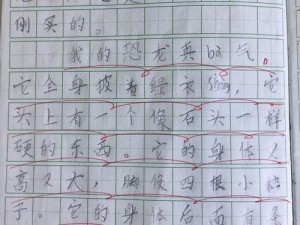 刚买的。
我的恐龙真bà气。
它全身披着绿衣shang，它
头上有一个像石头一样
硬的东西。它的身体又
高又大，脚像四根小柱
子。它的身体后面有